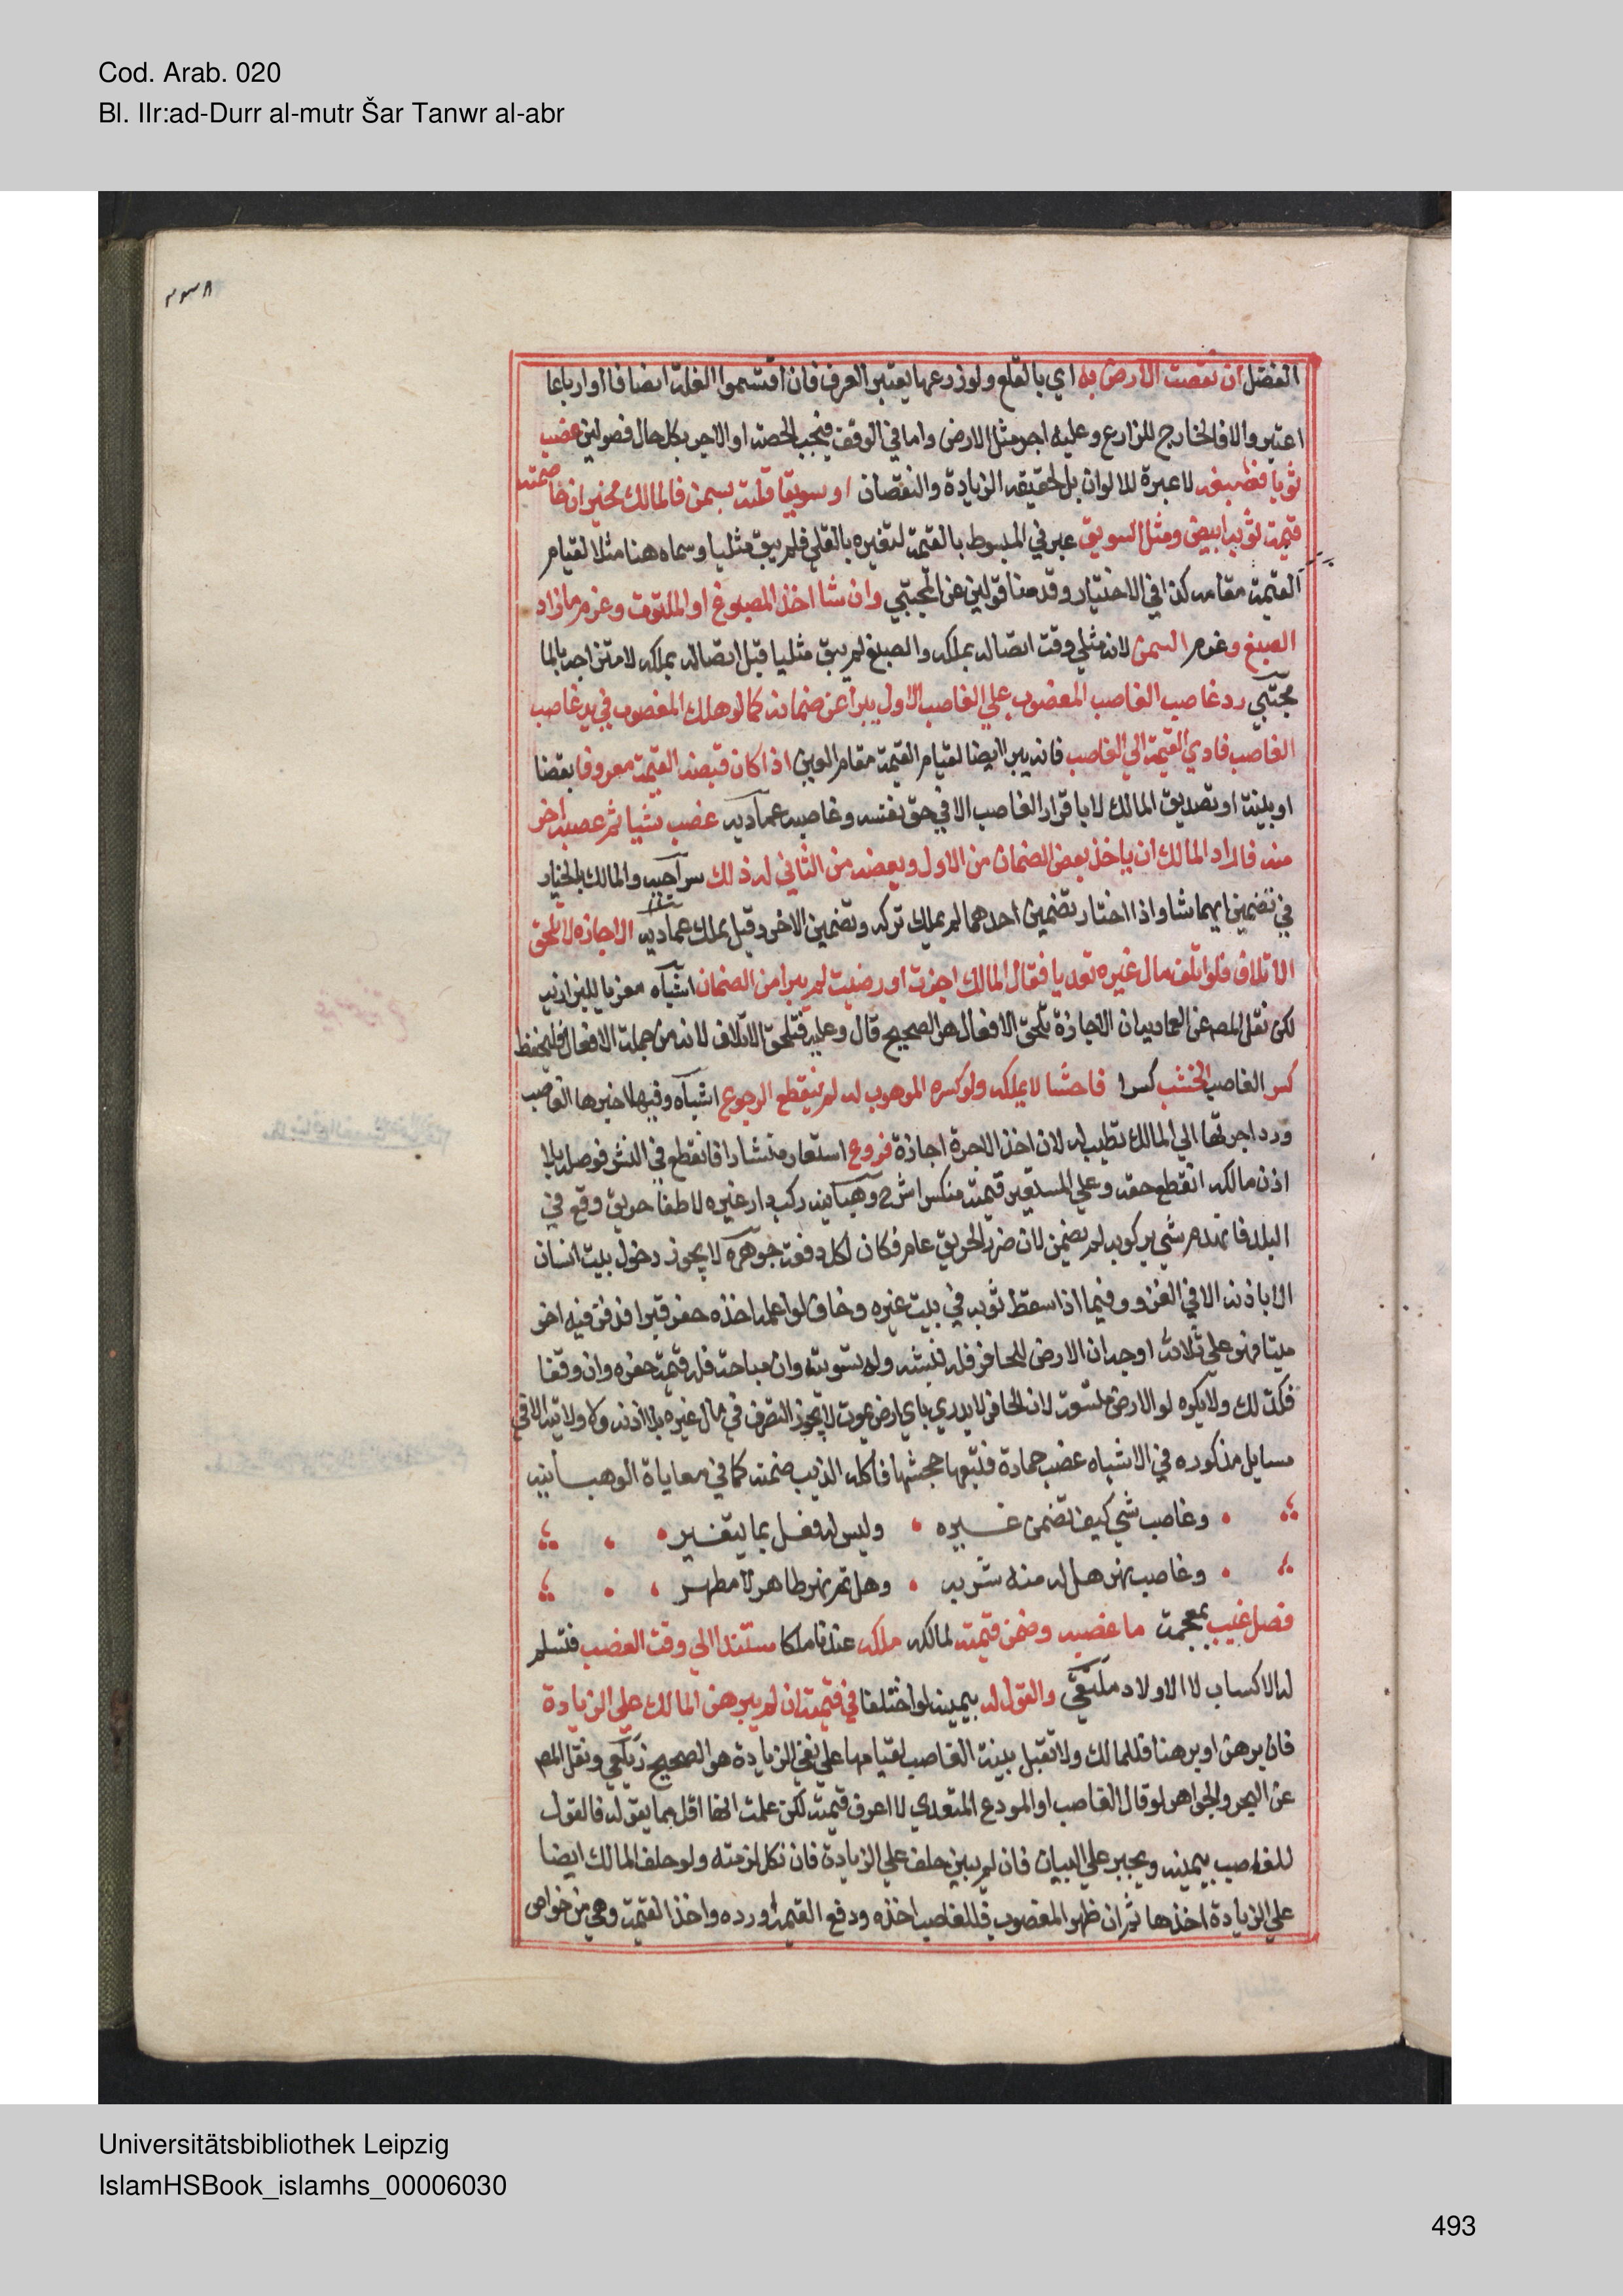 Cod. Arab. 020
Bl. IIr:ad-Durr al-mutr Šar Tanwr al-abr
الفضل ان نقصت الارض به اي بالقلع ولو زرعها يعتبر العرف فان اقتسموا الغلة انصافا او ارباعا
اعتبر والا فالخارج للزارع وعليه اجر مثل الارض واما في الوقف فتجب الحصة او الاجر بكل حال فصولين غصب
ثوبا فصبغه لا عبرة للالوان بل لحقيقة الزيادة والنقصان او سويقا فلته بسمن فالمالك مخير ان شا ضمنه
قيمة ثوبه ابيض ومثل السويق عبر في المبسوط بالقيمة لتغيره بالقلي فلم يبق مثليا وسماه هنا مثلا لقيام
القيمة مقامه كذا في الاختيار وقدمنا قولين عن المجتبي وان شا اخذ المصبوغ او الملتوت وغرم ما زاد
الصبغ وغرم السمن لانه مثلي وقت اتصاله بملكه والصبغ لم يبق مثليا قبل اتصاله بملكه لامتزاجه بالما
مجتبي رد غاصب الغاصب المغصوب علي الغاصب الاول يبرا عن ضمانه كما لو هلك المغصوب في يد غاصب
الغاصب فادي القيمة الي الغاصب فانه يبرا ايضا لقيام القيمة مقام العين اذا كان قبضه القيمة معروفا بقضا
او بينة او تصديق المالك لا باقرار الغاصب الا في حق نفسه وغاصبه عمادية غصب شيا ثم غصبه اخر
منه فاراد المالك ان ياخذ بعض الضمان من الاول وبعضه من الثاني له ذلك سراجيه والمالك بالخيار
في تضمين ايهما شا واذا اختار تضمين احدهما لم يملك تركه وتضمين الاخر وقيل يملك عمادية الاجازة لا تلحق
الاتلاف فلو اتلف مال غيره تعديا فقال المالك اجزت او رضيت لم يبرا من الضمان اشباه معزيا للبزازيه
لكن نقل المصـ عن العمادية ان الاجازة تلحق الافعال هو الصحيح قال وعليه فتلحق الاتلاف لانه من جملة الافعال فليحفظ
كسر الغاصب الخشب كسرا فاحشا لا يملكه ولو كسره الموهوب له لم ينقطع الرجوع اشباه وفيها اجرها الغاصب
ورد اجرتها الي المالك تطيب له لان اخذ الاجرة اجازة فروع استعار منشارا فانقطع في النشر فوصله بلا
اذن مالكه انقطع حقه وعلي المستعير قيمته منكسرا شرح وهبانيه ركب دار غيره لاطفا حريق وقع في
البلد فانهدم شي بركوبه لم يضمن لان ضرر الحريق عام فكان لكل دفعه جوهره لا يجوز دخول بيت انسان
الا باذنه الا في الغزو وفيما اذا سقط ثوبه في بيت غيره وخاف لو اعلمه اخذه حفر قبرا فدفن فيه اخر
ميتا فهو علي ثلاثة اوجه ان الارض للحافر فله نبشه وله تسويته وان مباحة فله قيمة حفره وان وقفا
فكذلك ولا يكره لو الارض متسعة لان الحافر لا يدري باي ارض يموت لا يجوز التصرف في مال غيره بلا اذنه ولا ولاية الا في
مسايل مذكوره في الاشباه غصب حمارة فتبعها جحشها فاكله الذيب ضمنه كما في معاياة الوهبانيه
وغاصب شي كيف تضمن غيره وليس له فعل بما يتغير
وغاصب نهر هل له منه شربه وهل ثم نهر طاهر لا مطهر
فصل غيب بمعجمة ما غصب وضمن قيمته لمالكه ملكه عندنا ملكا مستندا الي وقت الغصب فتسلم
له الاكساب لا الاولاد ملتقي والقول له بيمينه لو اختلفا في قيمته ان لم يبرهن المالك علي الزيادة
فان برهن او برهنا فللمالك ولا تقبل بينة الغاصب لقيامها علي نفي الزيادة هو الصحيح زيلعي ونقل المصـ
عن البحر والجواهر لو قال الغاصب او المودع المتعدي لا اعرف قيمته لكن علمت انها اقل مما يقوله فالقول
للغاصب بيمينه ويجبر علي البيان فان لم يبين حلف علي الزيادة فان نكل لزمته ولو حلف المالك ايضا
علي الزيادة اخذها ثم ان ظهر المغصوب فللغاصب اخذه ودفع القيمة او رده واخذ القيمة وهي من خواص
Universitätsbibliothek Leipzig
IslamHSBook_islamhs_00006030
493